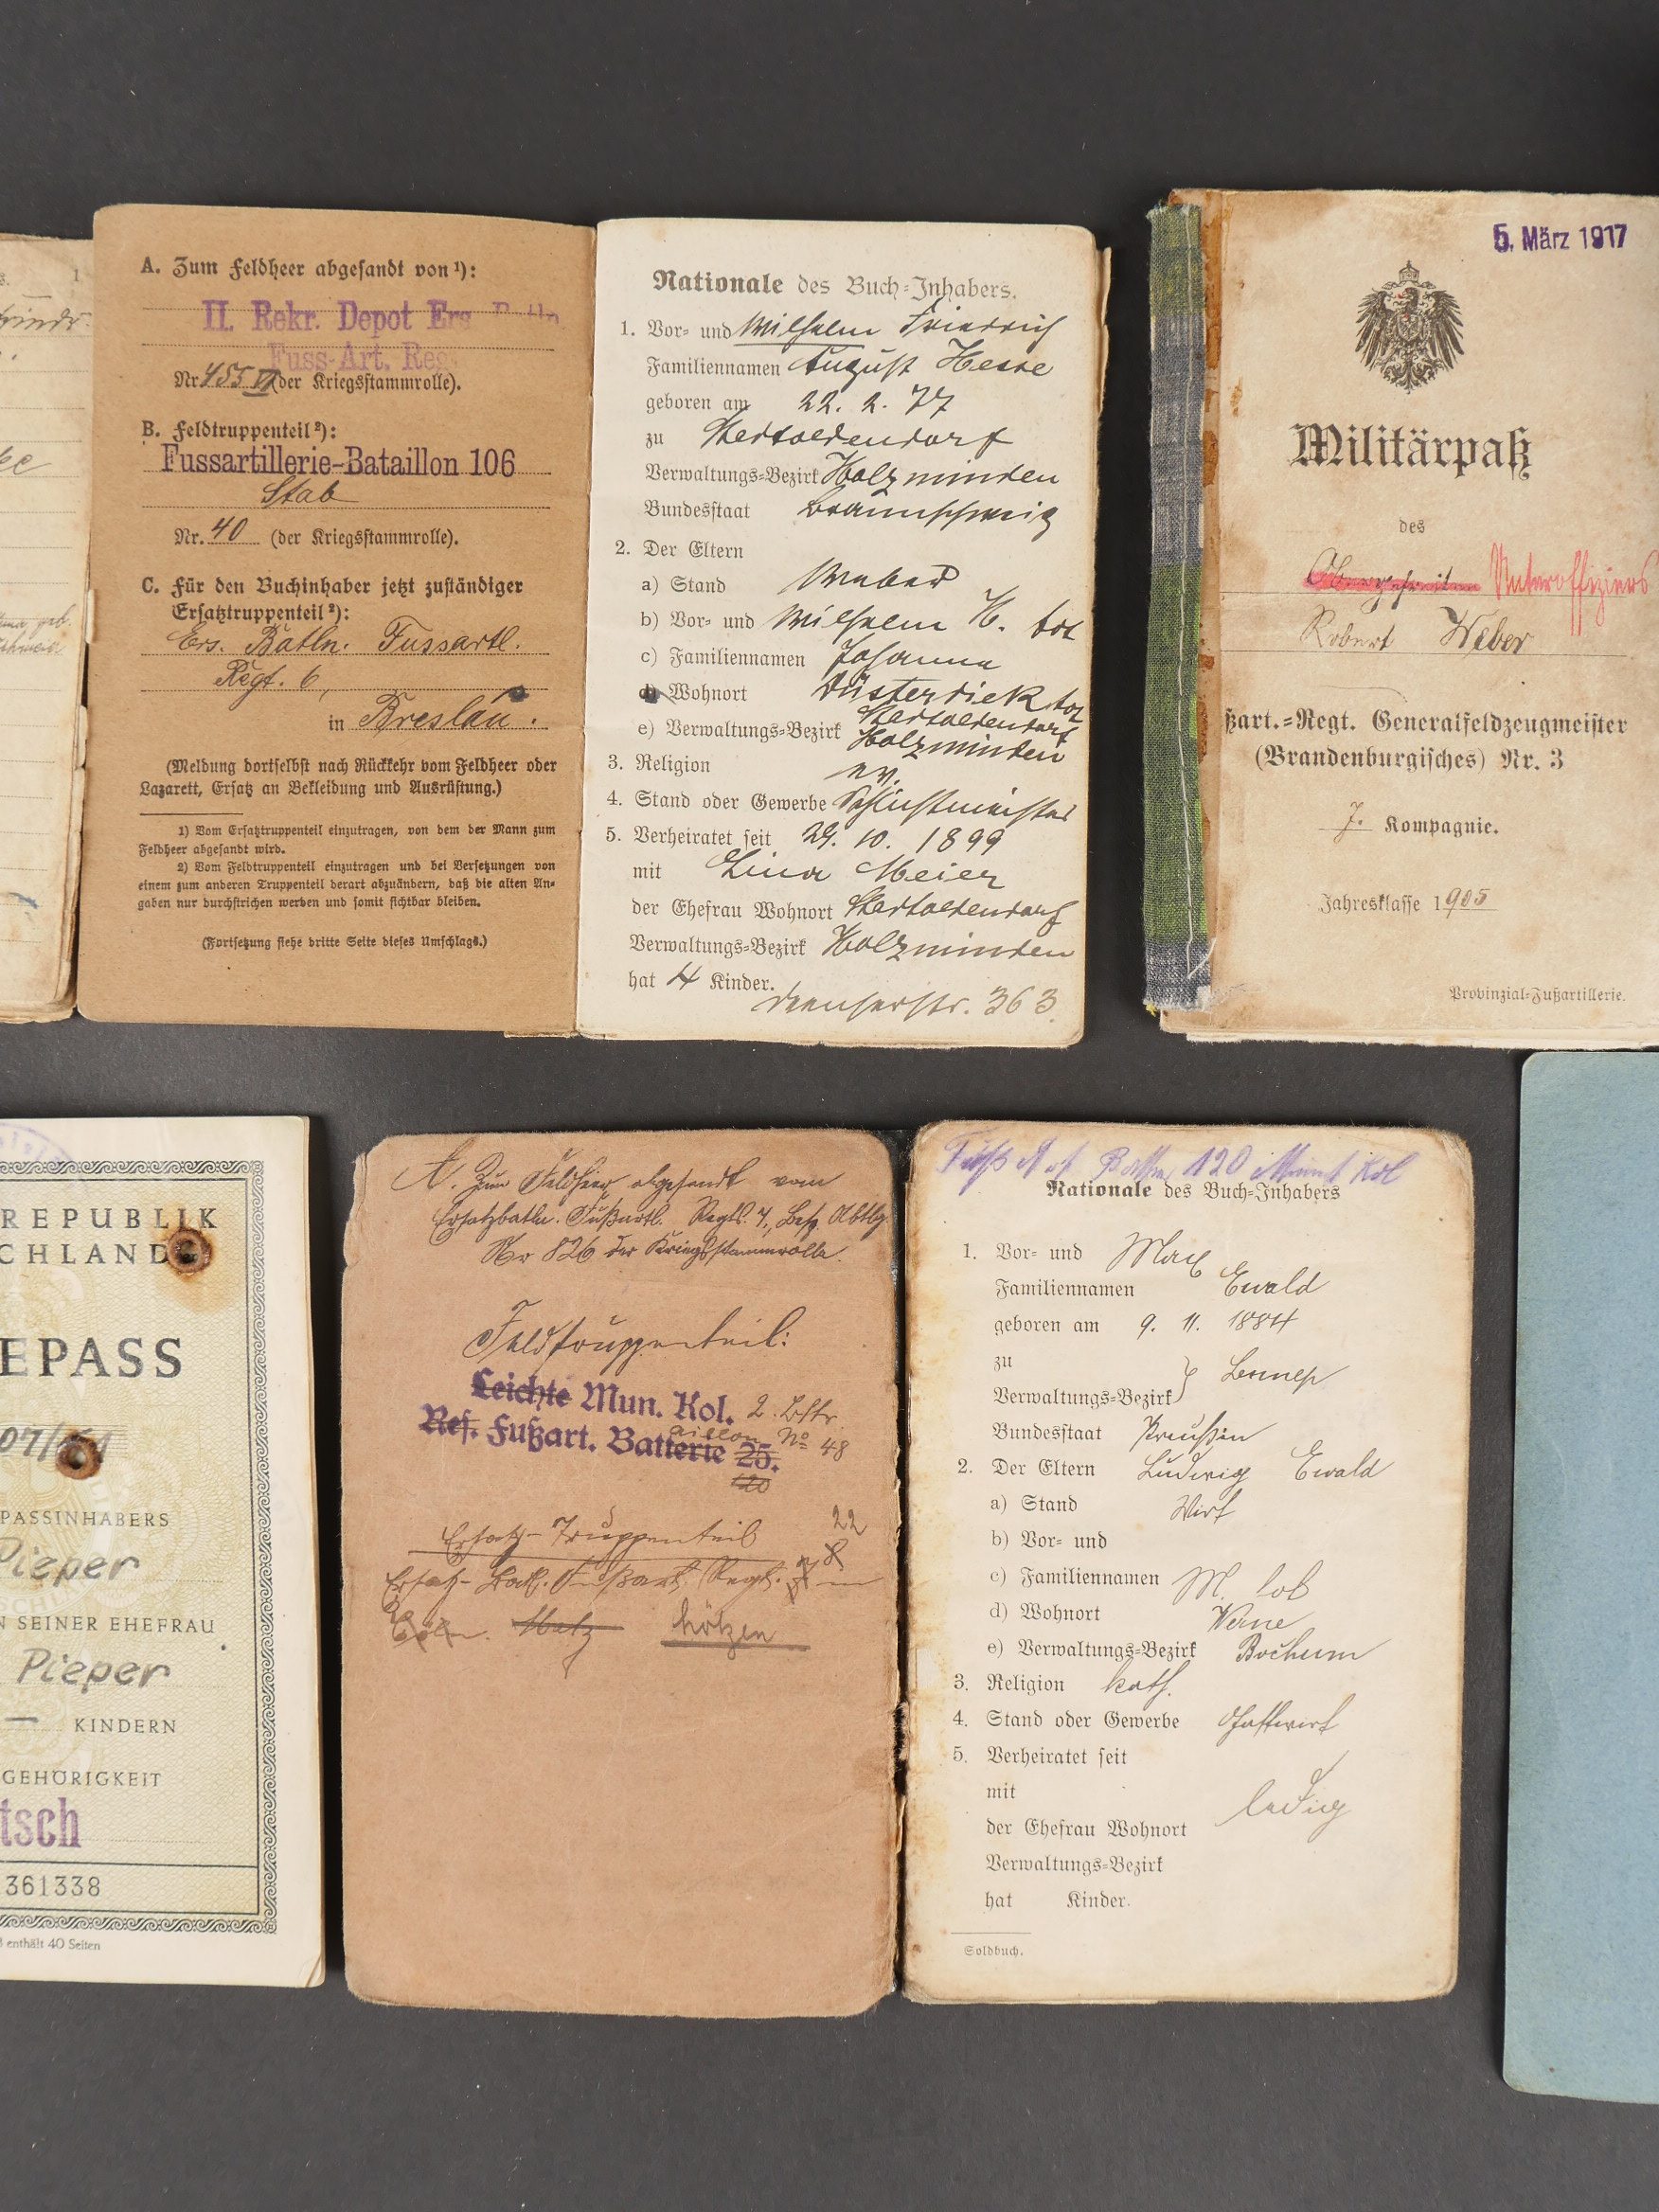 A. Zum Feldheer abgesandt von ¹):
II. Rekr. Depot Ers.
Fuss-Art. Reg.
Nr. 455 VI (der Kriegsstammrolle).
B. Feldtruppenteil ²):
Fussartillerie-Bataillon 106
Stab
Nr. 40 (der Kriegsstammrolle).
C. Für den Buchinhaber jetzt zuständiger
Ersatztruppenteil ²):
Ers. Batln. Fussartl.
Regt. 6,
in Breslau.
(Meldung dortselbst nach Rückkehr vom Feldheer oder
Lazarett, Ersatz an Bekleidung und Ausrüstung.)
1) Vom Ersatztruppenteil einzutragen, von dem der Mann zum
Feldheer abgesandt wird.
2) Vom Feldtruppenteil einzutragen und bei Versetzungen von
einem zum anderen Truppenteil derart abzuändern, daß die alten An-
gaben nur durchstrichen werden und somit sichtbar bleiben.
(Fortsetzung siehe dritte Seite dieses Umschlags.)
Nationale des Buch-Inhabers.
1. Vor- und Wilhelm Friedrich
Familiennamen August Hesse
geboren am 22. 2. 77
zu Stadtoldendorf
Verwaltungs-Bezirk Holzminden
Bundesstaat Braunschweig
2. Der Eltern
a) Stand Weber
b) Vor- und Wilhelm H. tot
c) Familiennamen Johanna
d) Wohnort Düsterdiek tot
e) Verwaltungs-Bezirk Stadtoldendorf
Holzminden
3. Religion ev.
4. Stand oder Gewerbe
5. Verheiratet seit 29. 10. 1899
mit Lina Meier
der Ehefrau Wohnort Stadtoldendorf
Verwaltungs-Bezirk Holzminden
hat 4 Kinder.
363
5. März 1917
Militärpaß
des
Obergefreiten Unteroffiziers
Robert Weber
ßart.-Regt. Generalfeldzeugmeister
(Brandenburgisches) Nr. 3
7. Kompagnie.
Jahresklasse 1905
Provinzial-Fußartillerie.
REPUBLIK
CHLAND
EPASS
07/
PASSINHABERS
Pieper
N SEINER EHEFRAU
Pieper
— KINDERN
GEHÖRIGKEIT
tsch
361338
enthält 40 Seiten
A. Zum Feldheer abgesandt vom
Ersatzbatln. Fußartl. Regts. 7, Bes. Abtlg.
Nr 826 der Kriegsstammrolle.
Feldtruppenteil:
Leichte Mun. Kol. 2. Bttr.
Res. Fußart. Batterie 25. aillon No 48
120
Ersatz-Truppenteil 22
Ersatz-Batl. Fußart. Regt. 7 8 in
Cöln. Metz
Fuß Art Battr 120 Mun Kol
Nationale des Buch-Inhabers
1. Vor- und Max
Familiennamen Ewald
geboren am 9. 11. 1884
zu
Verwaltungs-Bezirk } Lennep
Bundesstaat Preußen
2. Der Eltern Ludwig Ewald
a) Stand Wirt
b) Vor- und
c) Familiennamen M. tot
d) Wohnort Werne
e) Verwaltungs-Bezirk Bochum
3. Religion kath.
4. Stand oder Gewerbe Gastwirt
5. Verheiratet seit
mit ledig
der Ehefrau Wohnort
Verwaltungs-Bezirk
hat Kinder.
Soldbuch.